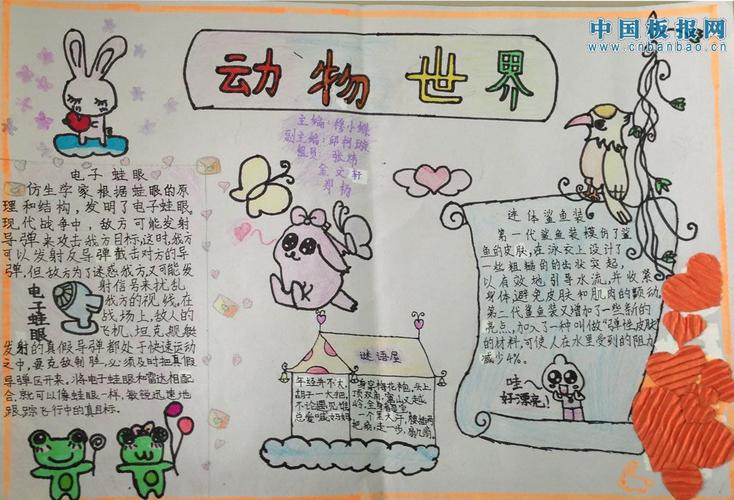 中国板报网
www.cnbanbao.cn
动物世界
主编：穆小蝶
副主编：邱柯璇
组员：张炜
金文轩
郑杨
电子蛙眼
仿生学家根据蛙眼的原
理和结构，发明了电子蛙眼。
现代战争中，敌方可能发射
导弹来攻击我方目标，这时，我方
可以发射反导弹截击对方的导
弹，但敌方为了迷惑我方又可能发
射信号来扰乱
我方的视线，在
战场上，敌人的
飞机、坦克、舰艇
发射的真假导弹都处于快速运动
之中，要克敌制胜，必须及时把真假
导弹区开来，将电子蛙眼和雷达相配
合，就可以像蛙眼一样，敏锐迅速地
跟踪飞行中的真目标。
电子蛙眼
谜语屋
年纪并不大，
胡子一大把，
不论遇见谁
总爱喊妈妈
身穿梅花袍，头上
顶双角，
一个黑大汉，腰插两
把扇，走一步，扇几扇。
连体鲨鱼装
第一代鲨鱼装模仿了鲨
鱼的皮肤，在泳衣上设计了
一些粗糙的的齿状突起，
以有效地引导水流，并收紧
身体，避免皮肤和肌肉的颤动。
第二代鲨鱼装又增加了一些新的
亮点，加入了一种叫做“弹性皮肤”
的材料，可使人在水里受到的阻力
减少4%。
哇～
好漂亮！